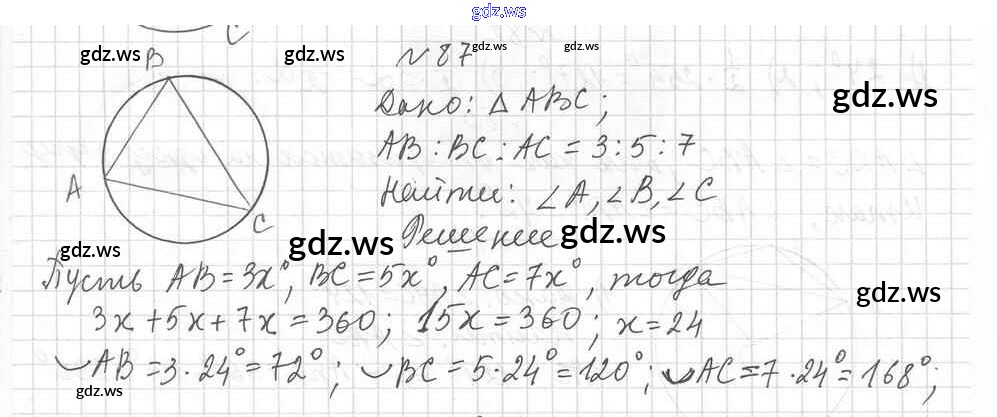 gdz.ws
gdz.ws gdz.ws gdz.ws gdz.ws
B № 87
Дано: △ ABC; gdz.ws
AB : BC : AC = 3 : 5 : 7
A Найти: ∠A, ∠B, ∠C
C
gdz.ws gdz.ws Решение gdz.ws
Пусть AB = 3x°, BC = 5x°, AC = 7x°, тогда
gdz.ws
3x + 5x + 7x = 360; 15x = 360; x = 24
◡AB = 3 · 24° = 72°; ◡BC = 5 · 24° = 120°; ◡AC = 7 · 24° = 168°;
gdz.ws